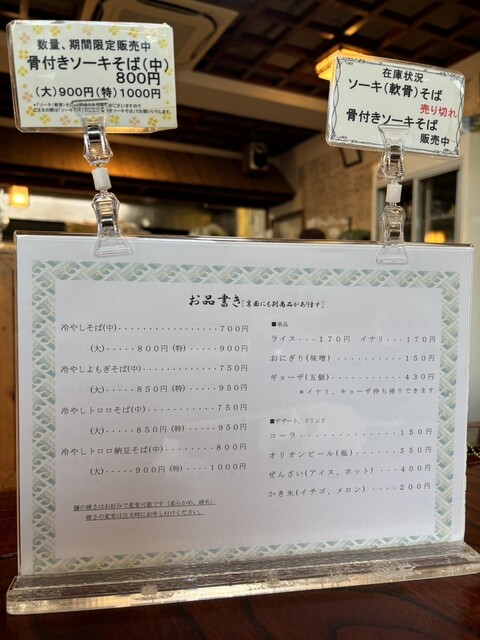 数量、期間限定販売中
骨付きソーキそば(中)
800円
(大)900円(特)1000円
在庫状況
ソーキ(軟骨)そば
売り切れ
骨付きソーキそば
販売中
お品書き[裏面にも別商品があります]
冷やしそば(中)・・・・・・・・・・・・・・・・700円
(大)・・・・・800円(特)・・・・・900円
冷やしよもぎそば(中)・・・・・・・・・・・・750円
(大)・・・・・850円(特)・・・・・950円
冷やしトロロそば(中)・・・・・・・・・・・・750円
(大)・・・・・850円(特)・・・・・950円
冷やしトロロ納豆そば(中)・・・・・・・・800円
(大)・・・・900円(特)・・・・1000円
麺の硬さはお好みで変更可能です(柔らかめ、硬め)
硬さの変更は注文時にお申し付けください。
■単品
ライス・・・170円 イナリ・・・170円
おにぎり(味噌)・・・・・・・・・・150円
ギョーザ(五個)・・・・・・・・・・430円
*イナリ、ギョーザ持ち帰りできます
■デザート、ドリンク
コーラ・・・・・・・・・・・・・・・・150円
オリオンビール(瓶)・・・・・・・550円
ぜんざい(アイス、ホット)・・・・400円
かき氷(イチゴ、メロン)・・・・・200円